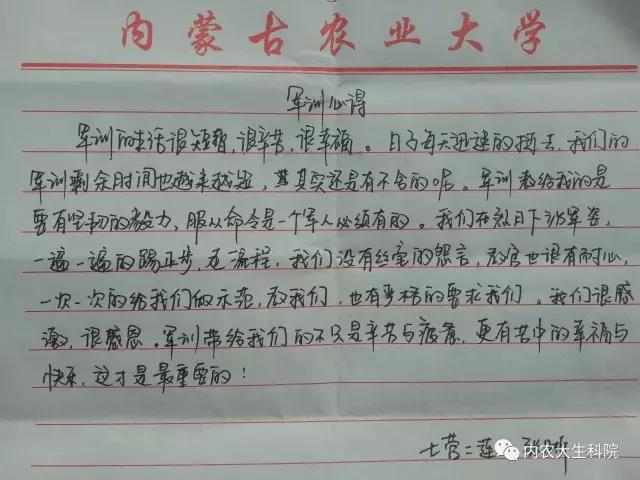 内蒙古农业大学
军训心得
军训的生活很短暂,很辛苦,很幸福。日子每天迅速的逝去,我们的
军训剩余时间也越来越短,其真实还是有不舍的呢。军训教给我的是
要有坚韧的毅力,服从命令是一个军人必须有的。我们在烈日下站军姿,
一遍一遍的踢正步,走流程,我们没有丝毫的怨言,教官也很有耐心,
一次一次的给我们做示范,教我们,也有严格的要求我们。我们很感
激,很感恩。军训带给我们的不只是辛苦与疲惫,更有苦中的幸福与
快乐,这才是最重要的!
七营二连
内农大生科院